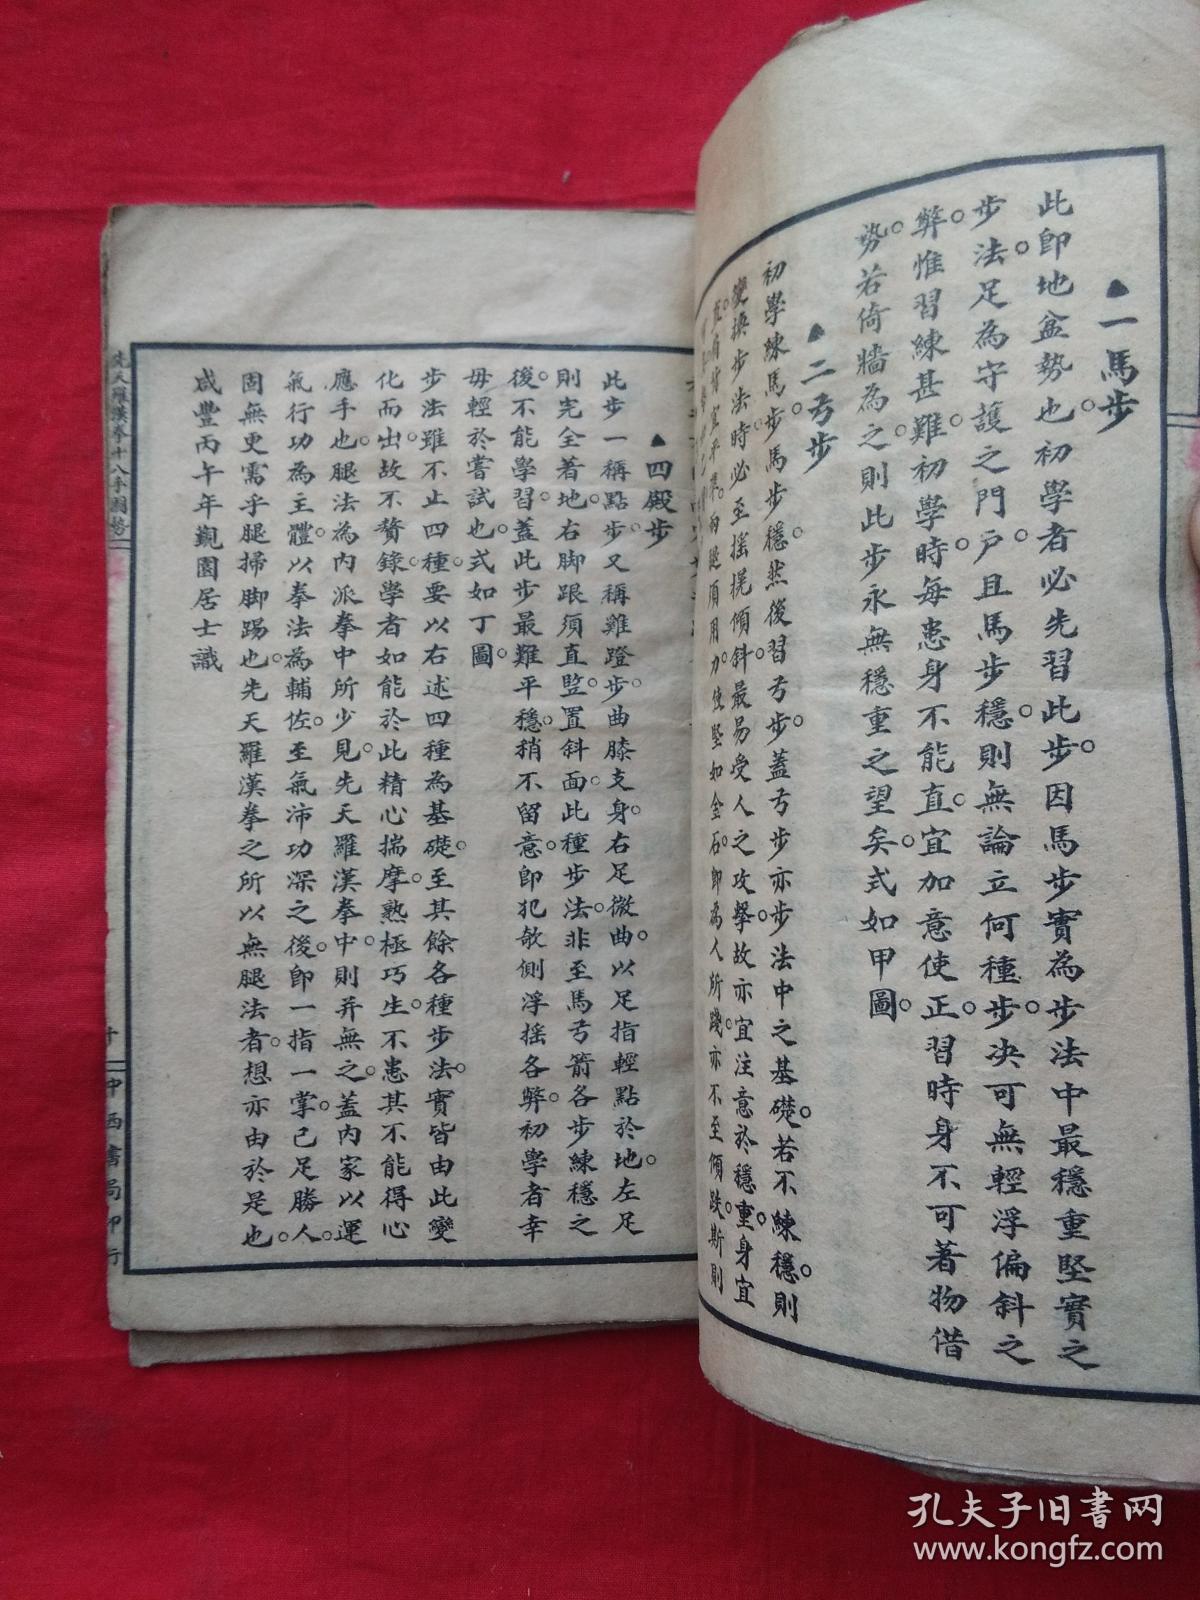 ▲一馬步
此即地盆勢也。初學者必先習此步。因馬步實為步法中最穩重堅實之
步法。足為守護之門戶。且馬步穩。則無論立何種步。决可無輕浮偏斜之
弊。惟習練甚難。初學時。每患身不能直。宜加意使正。習時身不可著物借
势。若倚牆為之。則此步永無穩重之望矣。式如甲圖。
▲二弓步
初學練馬步。馬步穩。然後習弓步。蓋弓步亦步法中之基礎。若不練穩。則
變換步法時。必至搖擺傾斜。最易受人之攻擊。故亦宜注意於穩重。身宜
直。肩背宜平準。兩腿須用力。使堅如金石。即為人所踐。亦不至傾跌。斯則
▲四殿步
此步一稱點步。又稱雞蹬步。曲膝支身。右足微曲。以足指輕點於地。左足
則完全著地。右脚跟須直監。置斜面。此種步法。非至馬弓箭各步練穩之
後。不能學習。蓋此步最難平穩。稍不留意。即犯欹側浮搖各弊。初學者幸
毋輕於嘗試也。式如丁圖。
步法雖不止四種。要以右述四種為基礎。至其餘各種步法。實皆由此變
化而出。故不贅錄。學者如能於此精心揣摩。熟極巧生。不患其不能得心
應手也。腿法為內派拳中所少見。先天羅漢拳中。則并無之。蓋內家以運
氣行功為主體。以拳法為輔佐。至氣沛功深之後。即一指一掌。已足勝人。
固無更需乎腿掃脚踢也。先天羅漢拳之所以無腿法者。想亦由於是也。
咸豐丙午年覲園居士識
先天羅漢拳十八手圖勢
十
中西書局印行
孔夫子旧书网
www.kongfz.com